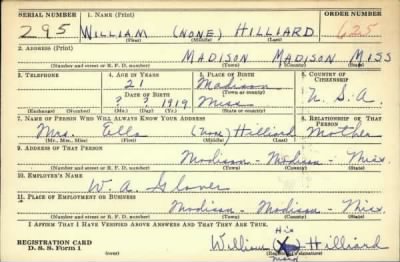 SERIAL NUMBER 1. NAME (Print) ORDER NUMBER
295 WILLIAM (NONE) HILLIARD 625
(First) (Middle) (Last)
2. ADDRESS (Print)
MADISON MADISON MISS
(Number and street or R. F. D. number) (Town) (County) (State)
3. TELEPHONE 4. AGE IN YEARS 5. PLACE OF BIRTH 6. COUNTRY OF CITIZENSHIP
21 Madison
DATE OF BIRTH (Town or county)
? ? 1919 Miss U. S. A.
(Exchange) (Number) (Mo.) (Day) (Yr.) (State or country)
7. NAME OF PERSON WHO WILL ALWAYS KNOW YOUR ADDRESS 8. RELATIONSHIP OF THAT PERSON
Mrs. Ella (None) Hilliard Mother
(Mr., Mrs., Miss) (First) (Middle) (Last)
9. ADDRESS OF THAT PERSON
Madison - Madison - Miss.
(Number and street or R. F. D. number) (Town) (County) (State)
10. EMPLOYER'S NAME
W. A. Glover
11. PLACE OF EMPLOYMENT OR BUSINESS
Madison - Madison - Miss.
(Number and street or R. F. D. number) (Town) (County) (State)
I AFFIRM THAT I HAVE VERIFIED ABOVE ANSWERS AND THAT THEY ARE TRUE.
His
REGISTRATION CARD William (X) Hilliard
D. S. S. Form 1 (over) (Registrant's signature)
Mark